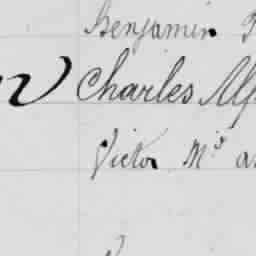 Benjamin
Charles Alf
Victor Mc a